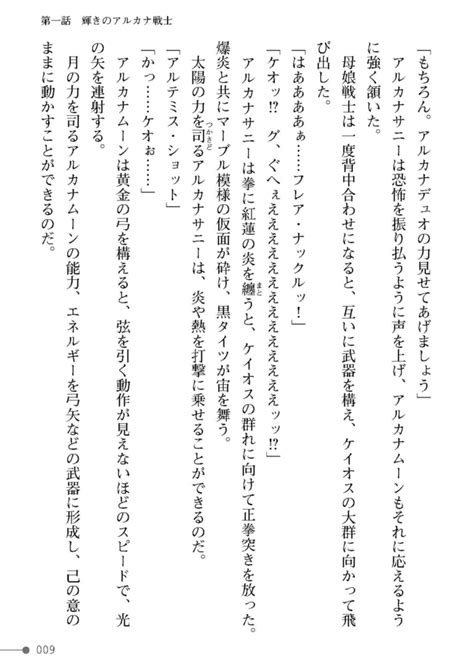 第一話　輝きのアルカナ戦士
「もちろん。アルカナデュオの力見せてあげましょう」
アルカナサニーは恐怖を振り払うように声を上げ、アルカナムーンもそれに応えるよう
に強く頷いた。
母娘戦士は一度背中合わせになると、互いに武器を構え、ケイオスの大群に向かって飛
び出した。
「はああああぁ……フレア・ナックルッ！」
「ケオッ!?　グ、ぐへぇえええええええええええええッッ!?」
アルカナサニーは拳に紅蓮の炎を纏うと、ケイオスの群れに向けて正拳突きを放った。
爆炎と共にマーブル模様の仮面が砕け、黒タイツが宙を舞う。
太陽の力を司るアルカナサニーは、炎や熱を打撃に乗せることができるのだ。
「アルテミス・ショット」
「かっ……ケオぉ……」
アルカナムーンは黄金の弓を構えると、弦を引く動作が見えないほどのスピードで、光
の矢を連射する。
月の力を司るアルカナムーンの能力、エネルギーを弓矢などの武器に形成し、己の意の
ままに動かすことができるのだ。
009